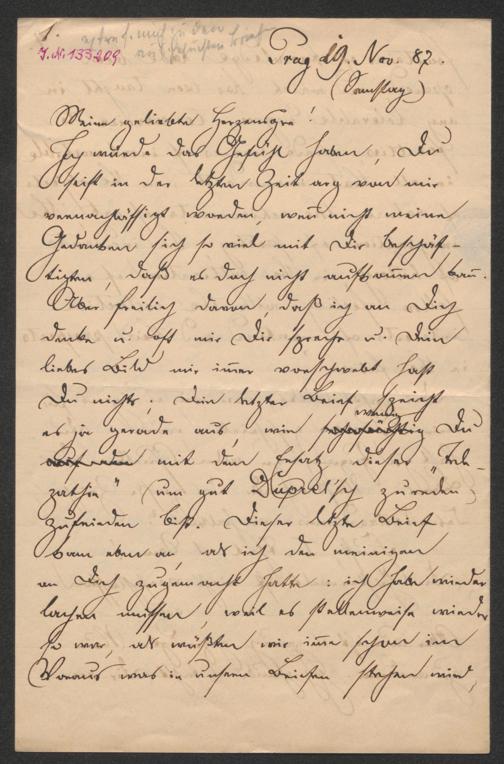 1.
J.N. 133209
Prag 19. Nov. 87.
(Samstag)
Meine geliebte Herzens
Ich würde das Gefühl haben, Du
seist in der letzten Zeit arg von mir
vernachlässigt worden, wenn nicht meine
Gedanken sich so viel mit Dir beschäf-
tigten, daß es doch nicht aufkommen kann.
Aber freilich davon, daß ich an Dich
denke u. oft mit Dir spreche u. Dein
liebes Bild mir immer vorschwebt hast
Du nichts; Dein letzter Brief spricht
es ja gerade aus, wie wenig Du
mit dem Ersatz dieser "Tele-
pathie" (um gut Duprel'sch zu reden)
zufrieden bist. Dieser letzte Brief
kam eben an, als ich den meinigen
an Dich zugemacht hatte: ich habe wieder
lachen müssen, weil es stellenweise wieder
so war, als wüßten wir immer schon im
Voraus was in unsern Briefen stehen wird,